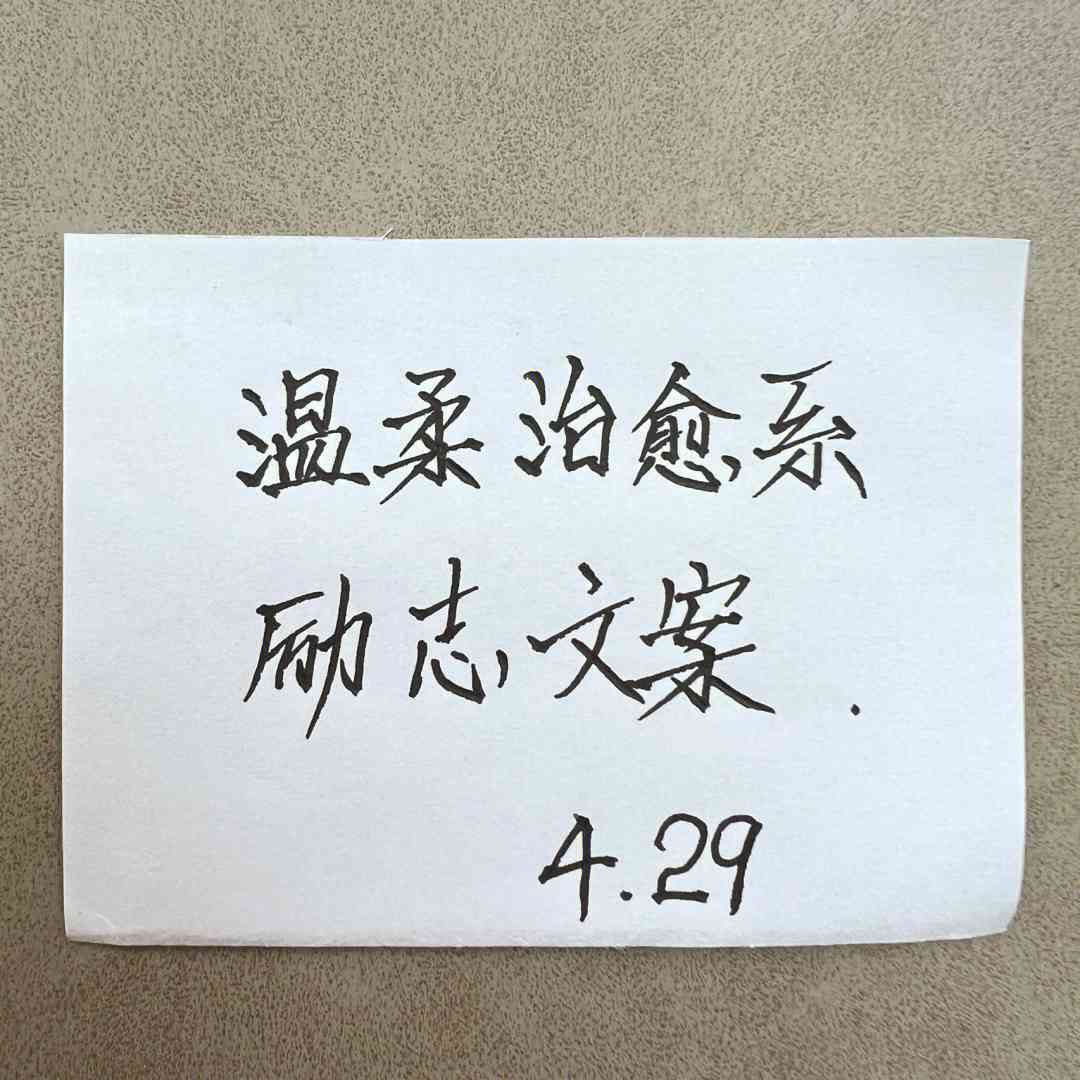 温柔治愈系
励志文案.
4.29